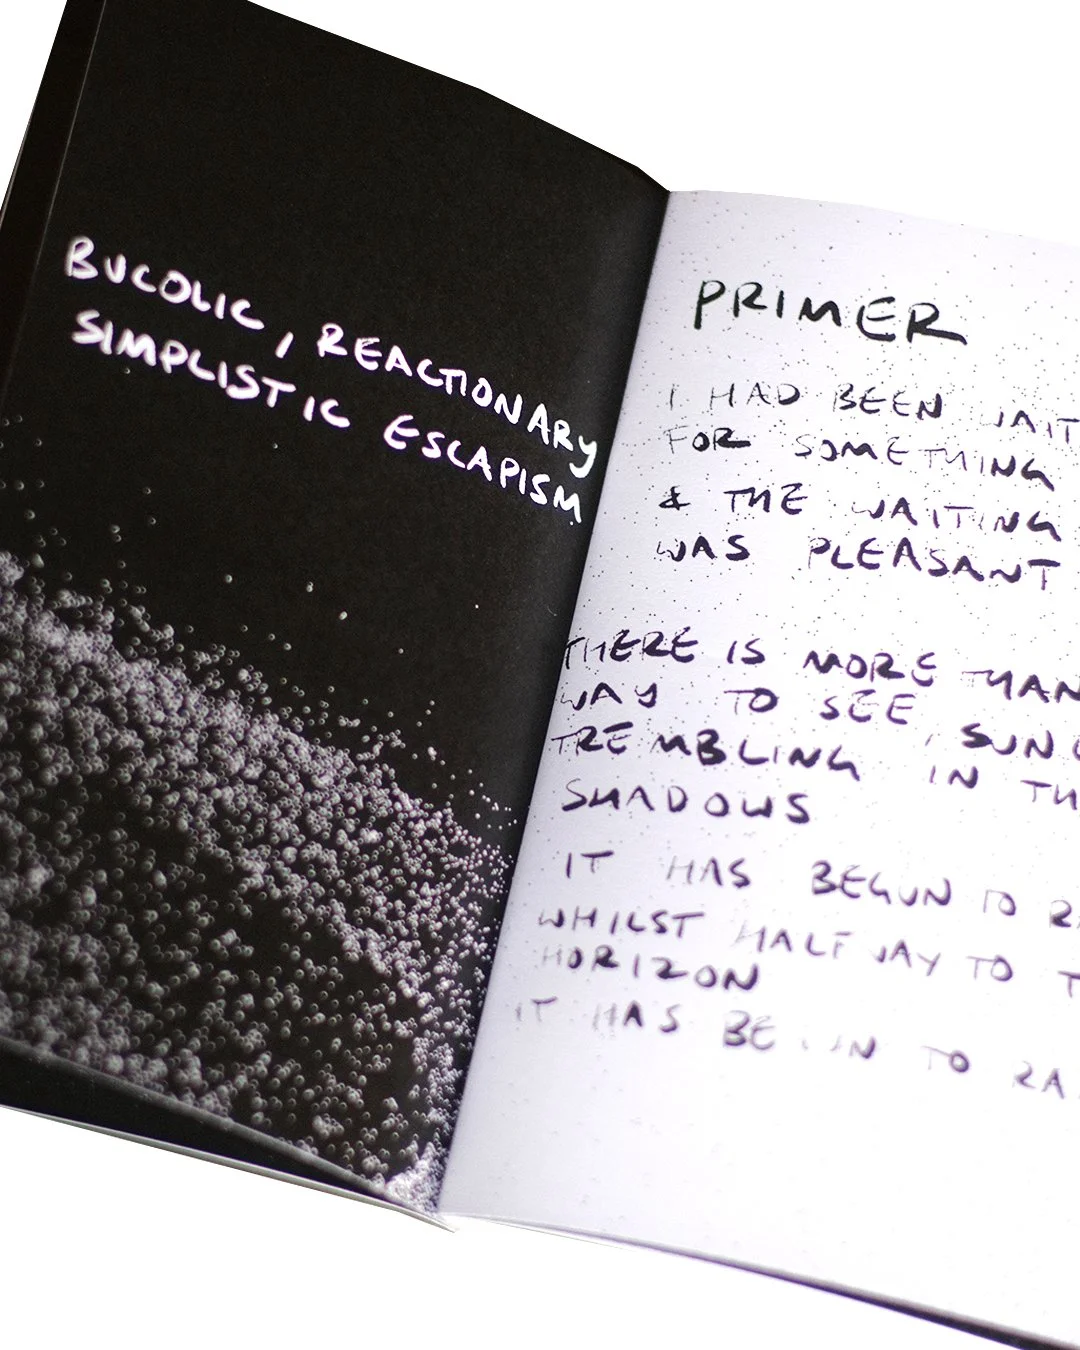 BUCOLIC, REACTIONARY
SIMPLISTIC ESCAPISM
PRIMER
I HAD BEEN
FOR SOMETHING
& THE WAITING
WAS PLEASANT
THERE IS MORE THAN
WAY TO SEE, SUN
TREMBLING IN
SHADOWS
IT HAS BEGUN TO
WHILST HALF WAY TO
HORIZON
IT HAS BEGUN TO